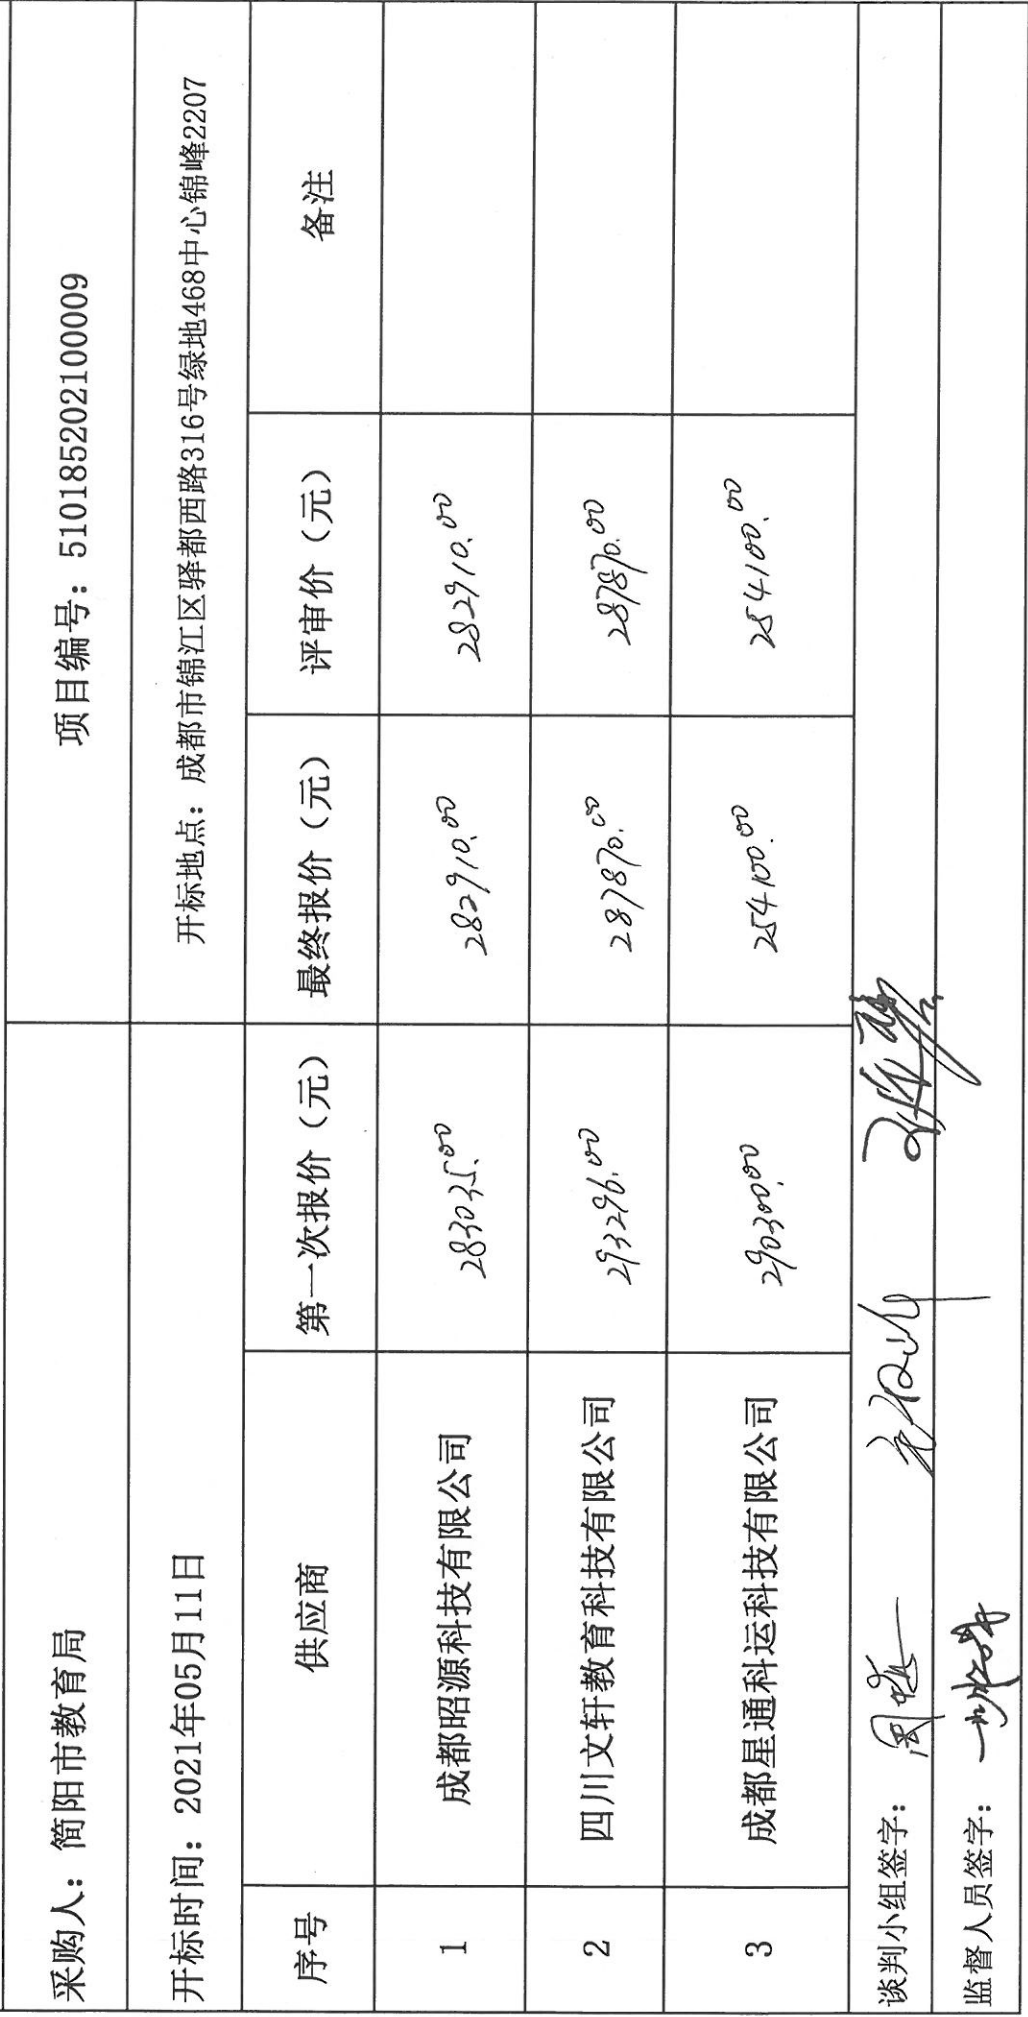 采购人：简阳市教育局 项目编号：5101852021000​09
开标时间：2021年05月11日 开标地点：成都市锦江区驿都西路316号绿地468中心锦峰2207
序号 供应商 第一次报价（元） 最终报价（元） 评审价（元） 备注
1 成都昭源科技有限公司 283035.00 282910.00 282910.00
2 四川文轩教育科技有限公司 293296.00 287870.00 287870.00
3 成都星通科运科技有限公司 290300.00 254100.00 254100.00
谈判小组签字：
监督人员签字：